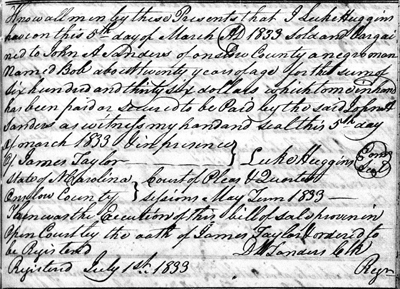 Know all men by these Presents that I Luke Huggins
have on this 5th day of March AD 1833 sold and Bargai
ned to John A Sanders of onslow County a negro man
Named Bob about twenty years of age for the sum of
six hundred and thirty six dollars which to me in hand
has been paid or secured to be Paid by the said John A
Sanders as witness my hand and seal this 5th day
of march 1833 In presence
of James Taylor } Luke Huggins Seal
State of N Carolina } Court of Pleas & Quarter
Onslow County } sessions May Term 1833
Then was the Execution of this bill of sale proven in
Open Court by the oath of James Taylor & ordered to
be Registerd D W Sanders Clk
Registerd July 1st 1833 Regr